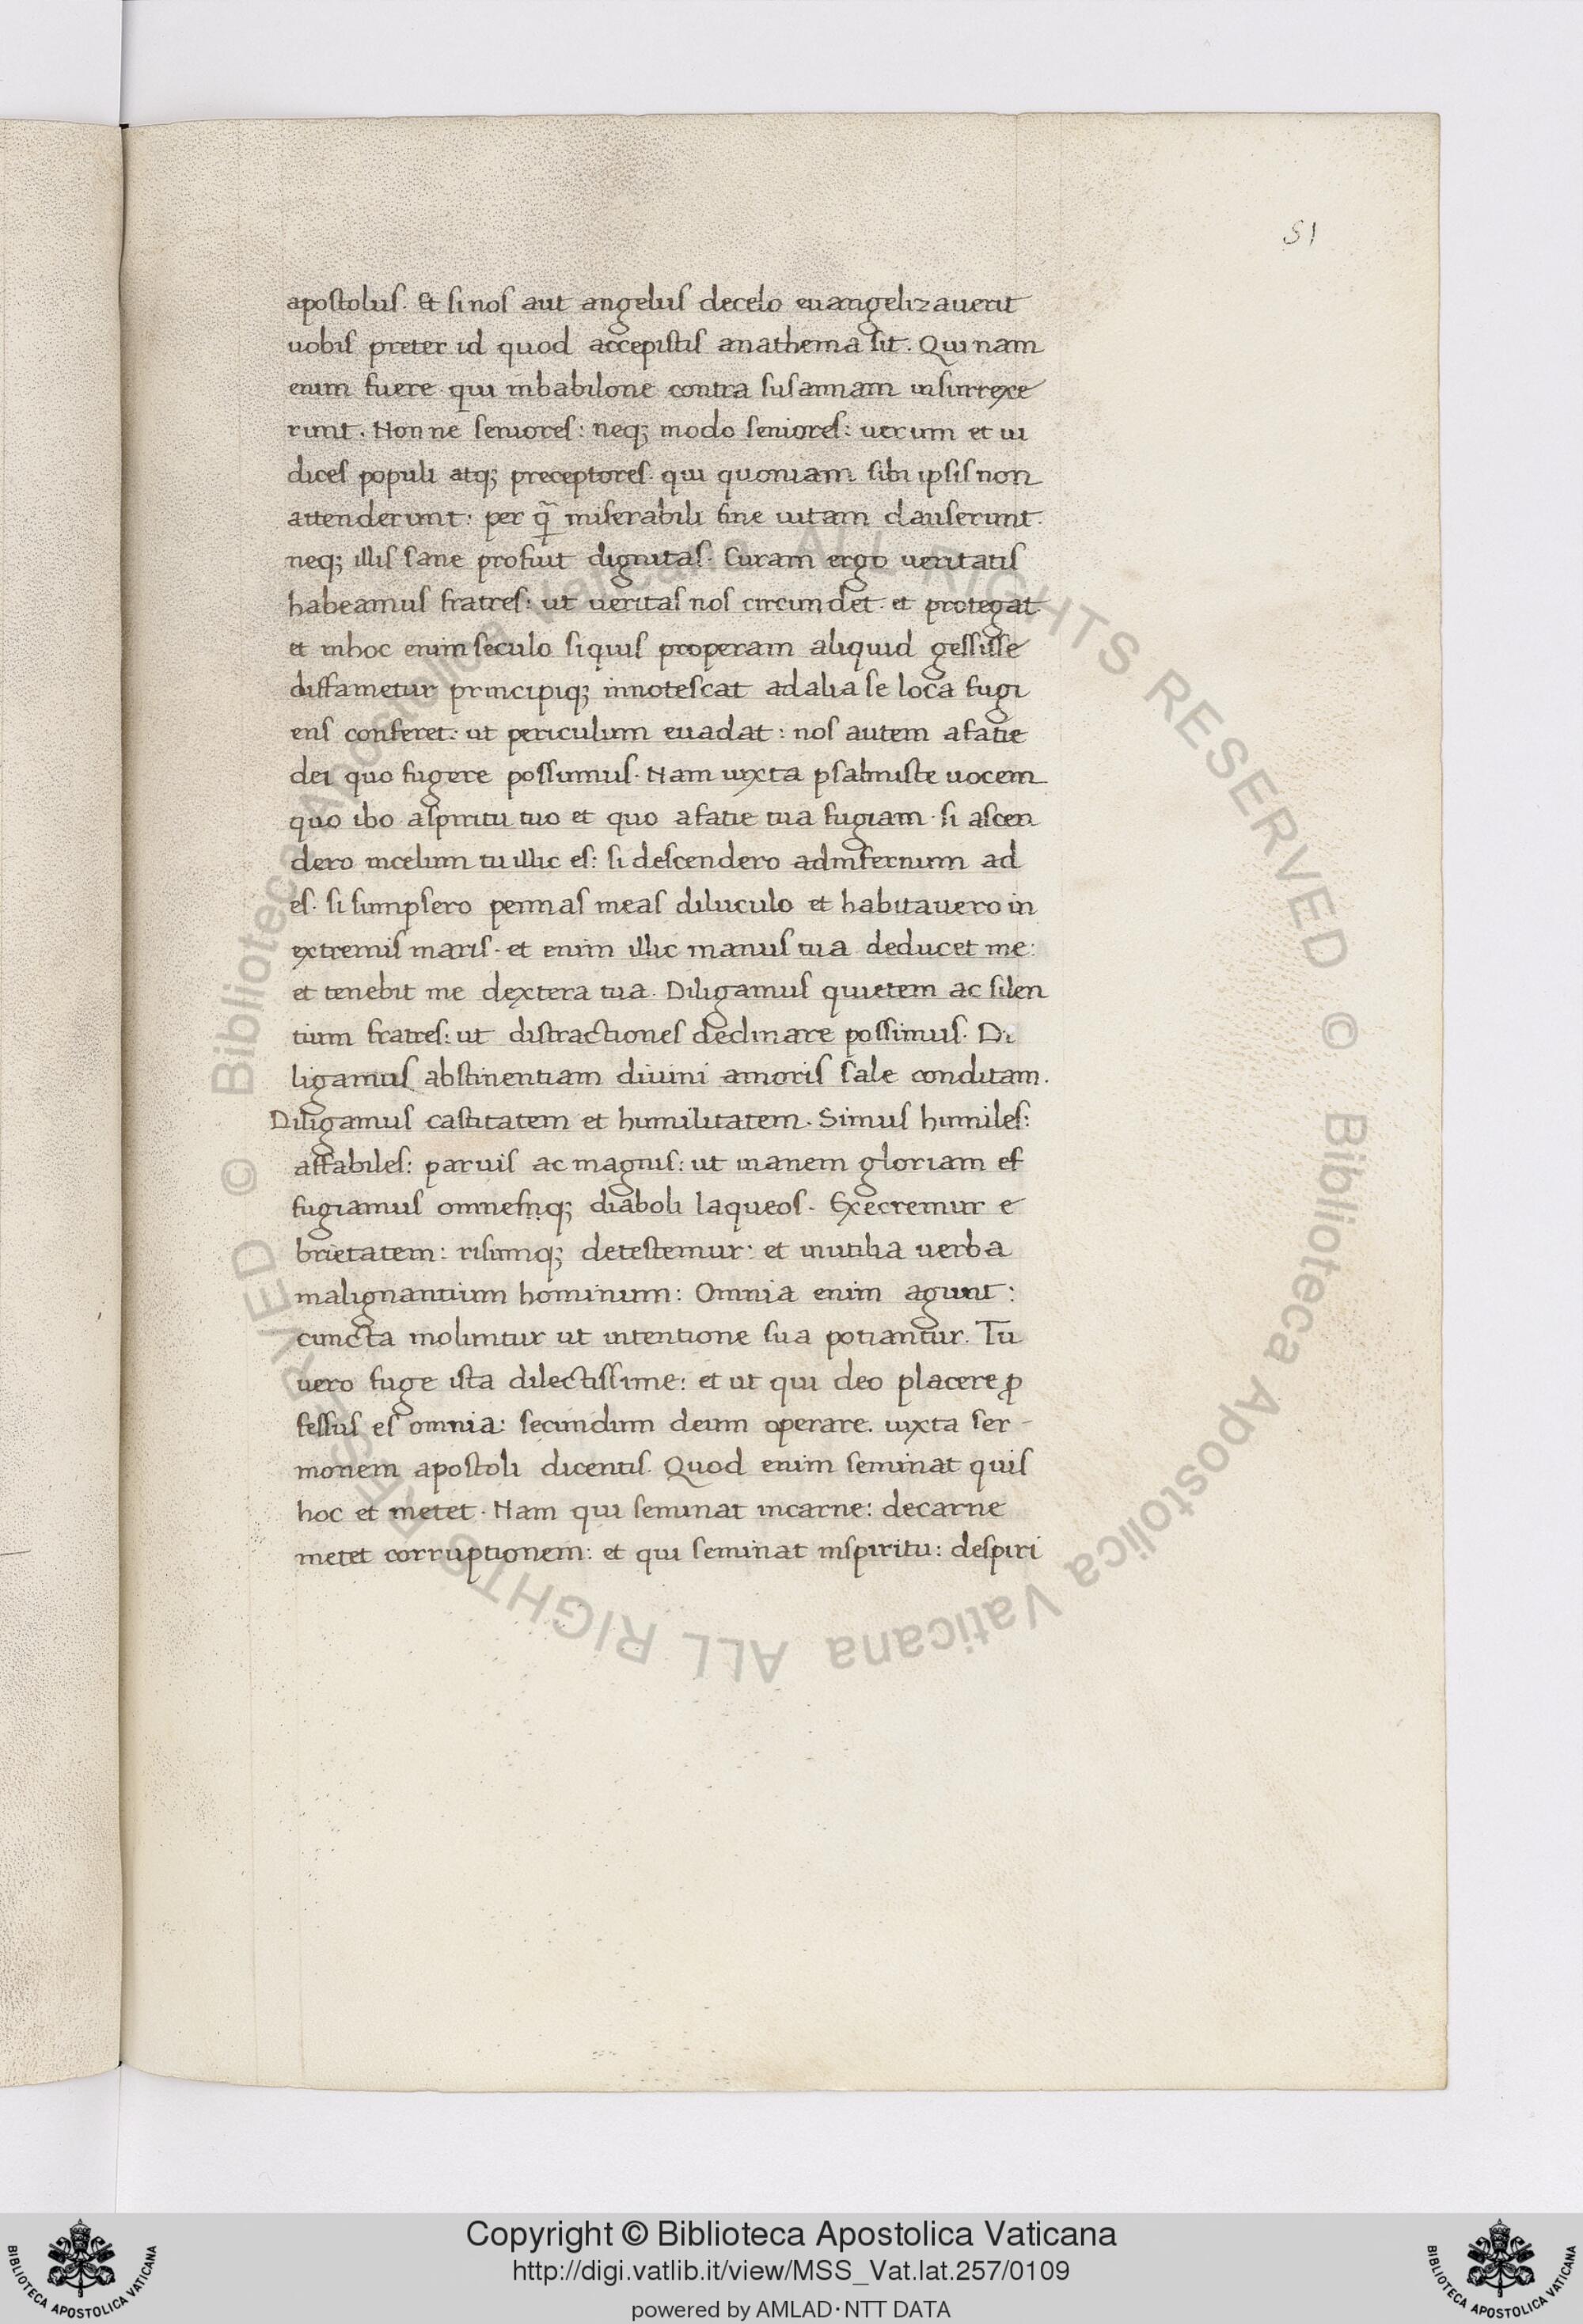 51
apostolus. Et si nos aut angelus decelo euangelizauerit
uobis preter id quod accepistis anathema sit. Quinam
enim fuere qui inbabilone contra susannam insurrexe
runt. Nonne seniores: neq; modo seniores: uerum et iu
dices populi atq; preceptores. qui quoniam sibi ipsis non
attenderunt: per q̃ miserabili fine uitam clauserunt.
neq; illis sane profuit dignitas. Curam ergo ueritatis
habeamus fratres: ut ueritas nos circundet. et protegat.
et inhoc enim seculo siquis properam aliquid gessisse
diffametur principiq; innotescat adalia se loca fugi
ens conferet: ut periculum euadat: nos autem afatie
dei quo fugere possumus. Nam iuxta psalmiste uocem
quo ibo aspiritu tuo et quo afatie tua fugiam. si ascen
dero incelum tu illic es: si descendero adinfernum ad
es. si sumpsero pennas meas diluculo et habitauero in
extremis maris. et enim illic manus tua deducet me:
et tenebit me dextera tua. Diligamus quietem ac silen
tium fratres: ut distractiones declinare possimus. Di
ligamus abstinentiam diuini amoris sale conditam.
Diligamus castitatem et humilitatem. Simus humiles:
affabiles: paruis ac magnis: ut inanem gloriam ef
fugiamus omnesnq; diaboli laqueos. Execremur e
brietatem: risumq; detestemur: et inutilia uerba
malignantium hominum: Omnia enim agunt:
cuncta moliuntur ut intentione sua potiantur. Tu
uero fuge ista dilectissime: et ut qui deo placere ꝓ
fessus es omnia: secundum deum operare. iuxta ser-
monem apostoli dicentis. Quod enim seminat quis
hoc et metet. Nam qui seminat incarne: decarne
metet corruptionem: et qui seminat inspiritu: despiri
© Biblioteca Apostolica Vaticana ALL RIGHTS RESERVED © Biblioteca Apostolica Vaticana ALL RIGHTS RESERVED
Copyright © Biblioteca Apostolica Vaticana
http://digi.vatlib.it/view/MSS_Vat.lat.257/0109
powered by AMLAD·NTT DATA
BIBLIOTECA APOSTOLICA VATICANA
BIBLIOTECA APOSTOLICA VATICANA